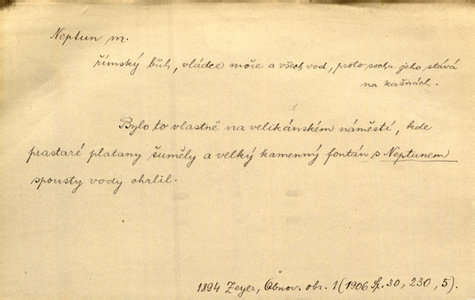 Neptun m.
římský bůh, vládce moře a všech vod, proto socha jeho stává
na kašnách.
Bylo to vlastně na velikánském náměstí, kde
prastaré platany šuměly a velký kamenný fontán s Neptunem
spousty vody chrlil.
1894 Zeyer, Obnov. obr. 1 (1906 Sp. 30, 230, 5).